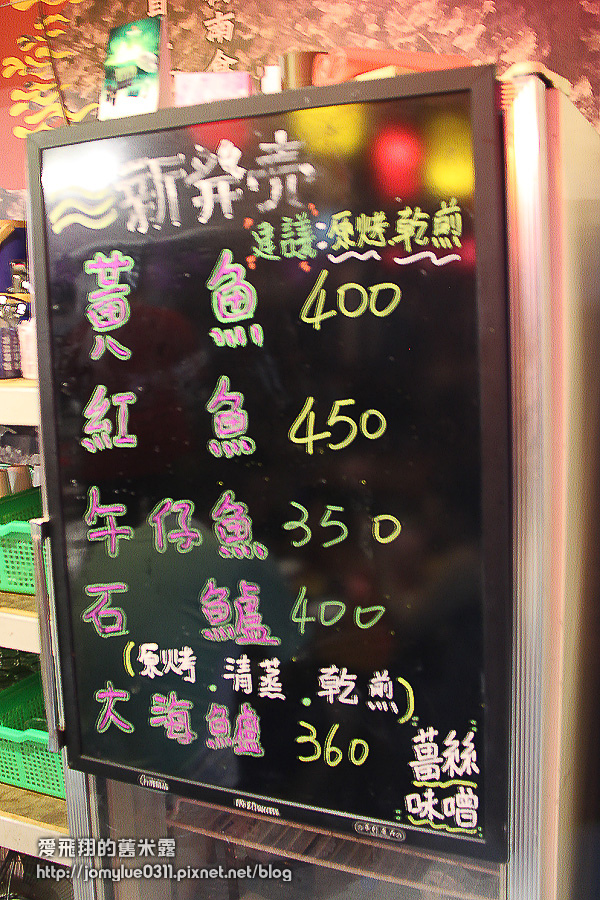 新発売
建議:原烤、乾煎
黃魚 400
紅魚 450
午仔魚 350
石鱸 400
(原烤.清蒸.乾煎)
大海鱸 360
薑絲
味噌
愛飛翔的舊米露
http://jomylue0311.pixnet.net/blog